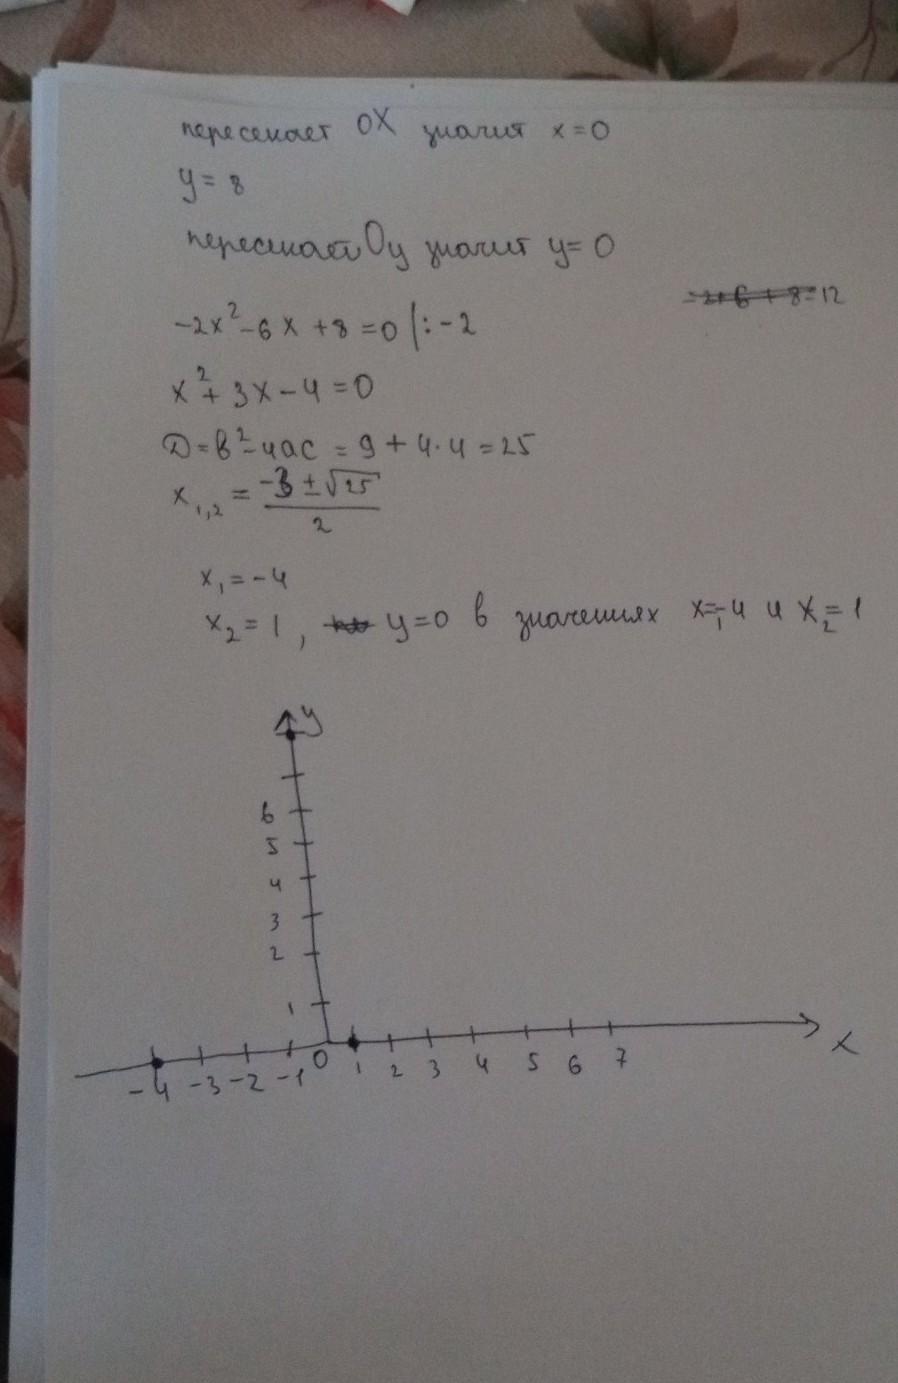 пересекает OX значит x=0
y = 8
пересекает Oy значит y=0
-2+6+8=12
-2x²-6x+8=0 |:-2
x²+3x-4=0
D=b²-4ac = 9+4·4=25
x₁,₂ = (-3±√25)/2
x₁=-4
x₂=1, y=0 в значениях x₁=-4 и x₂=1
y
6
5
4
3
2
1
-4 -3 -2 -1 0 1 2 3 4 5 6 7
x